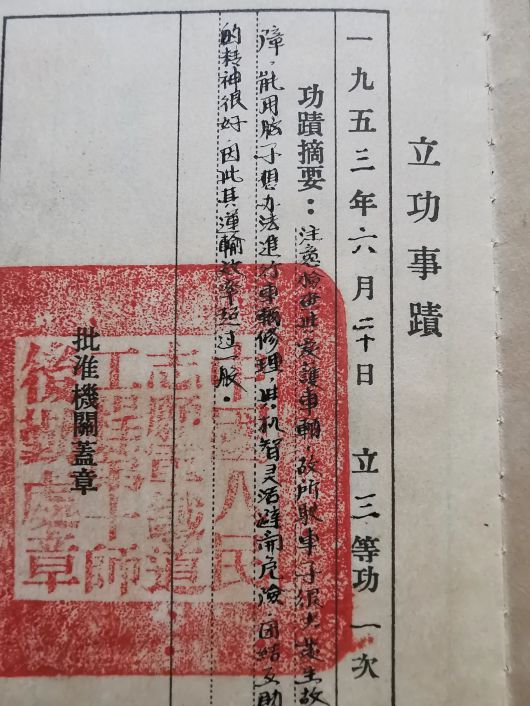 立功事蹟
一九五三年六月二十日 立三等功一次
功蹟摘要：注意檢查與愛護車輛，故所駛車子很少發生故
障，能用腦子想办法進行車輛修理，其机智灵活避開危險 团结互助
的精神很好 因此其運輸效率超过一般。
批准機關蓋章
中國人民
志願軍鐵道
工程第十師
後勤處章